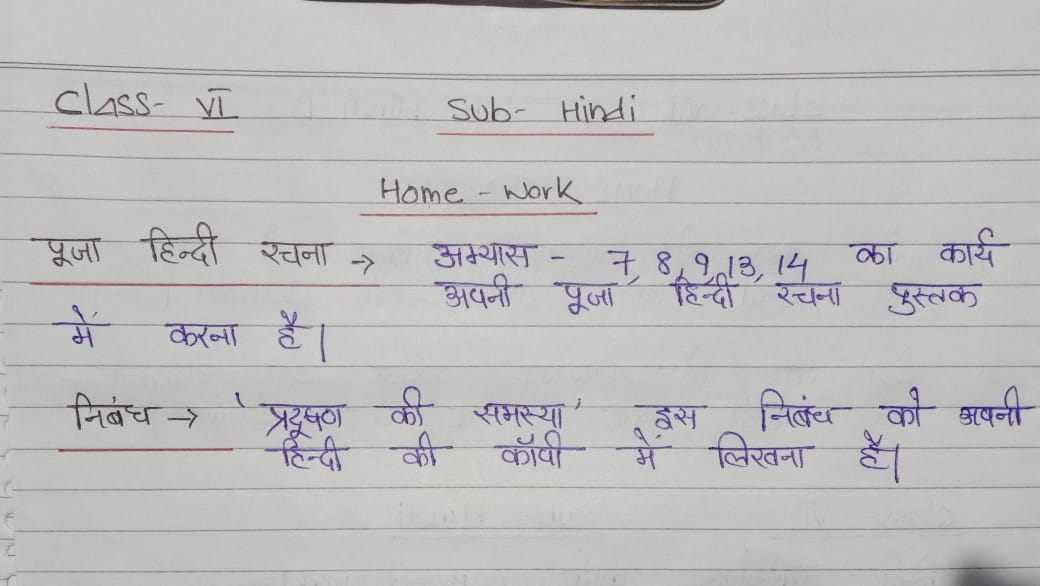 Class- VI Sub- Hindi
Home - Work
पूजा हिन्दी रचना → अभ्यास - 7, 8, 9, 13, 14 का कार्य
अपनी पूजा हिन्दी रचना पुस्तक
में करना है|
निबंध → 'प्रदूषण की समस्या' इस निबंध को अपनी
हिन्दी की कॉपी में लिखना है|